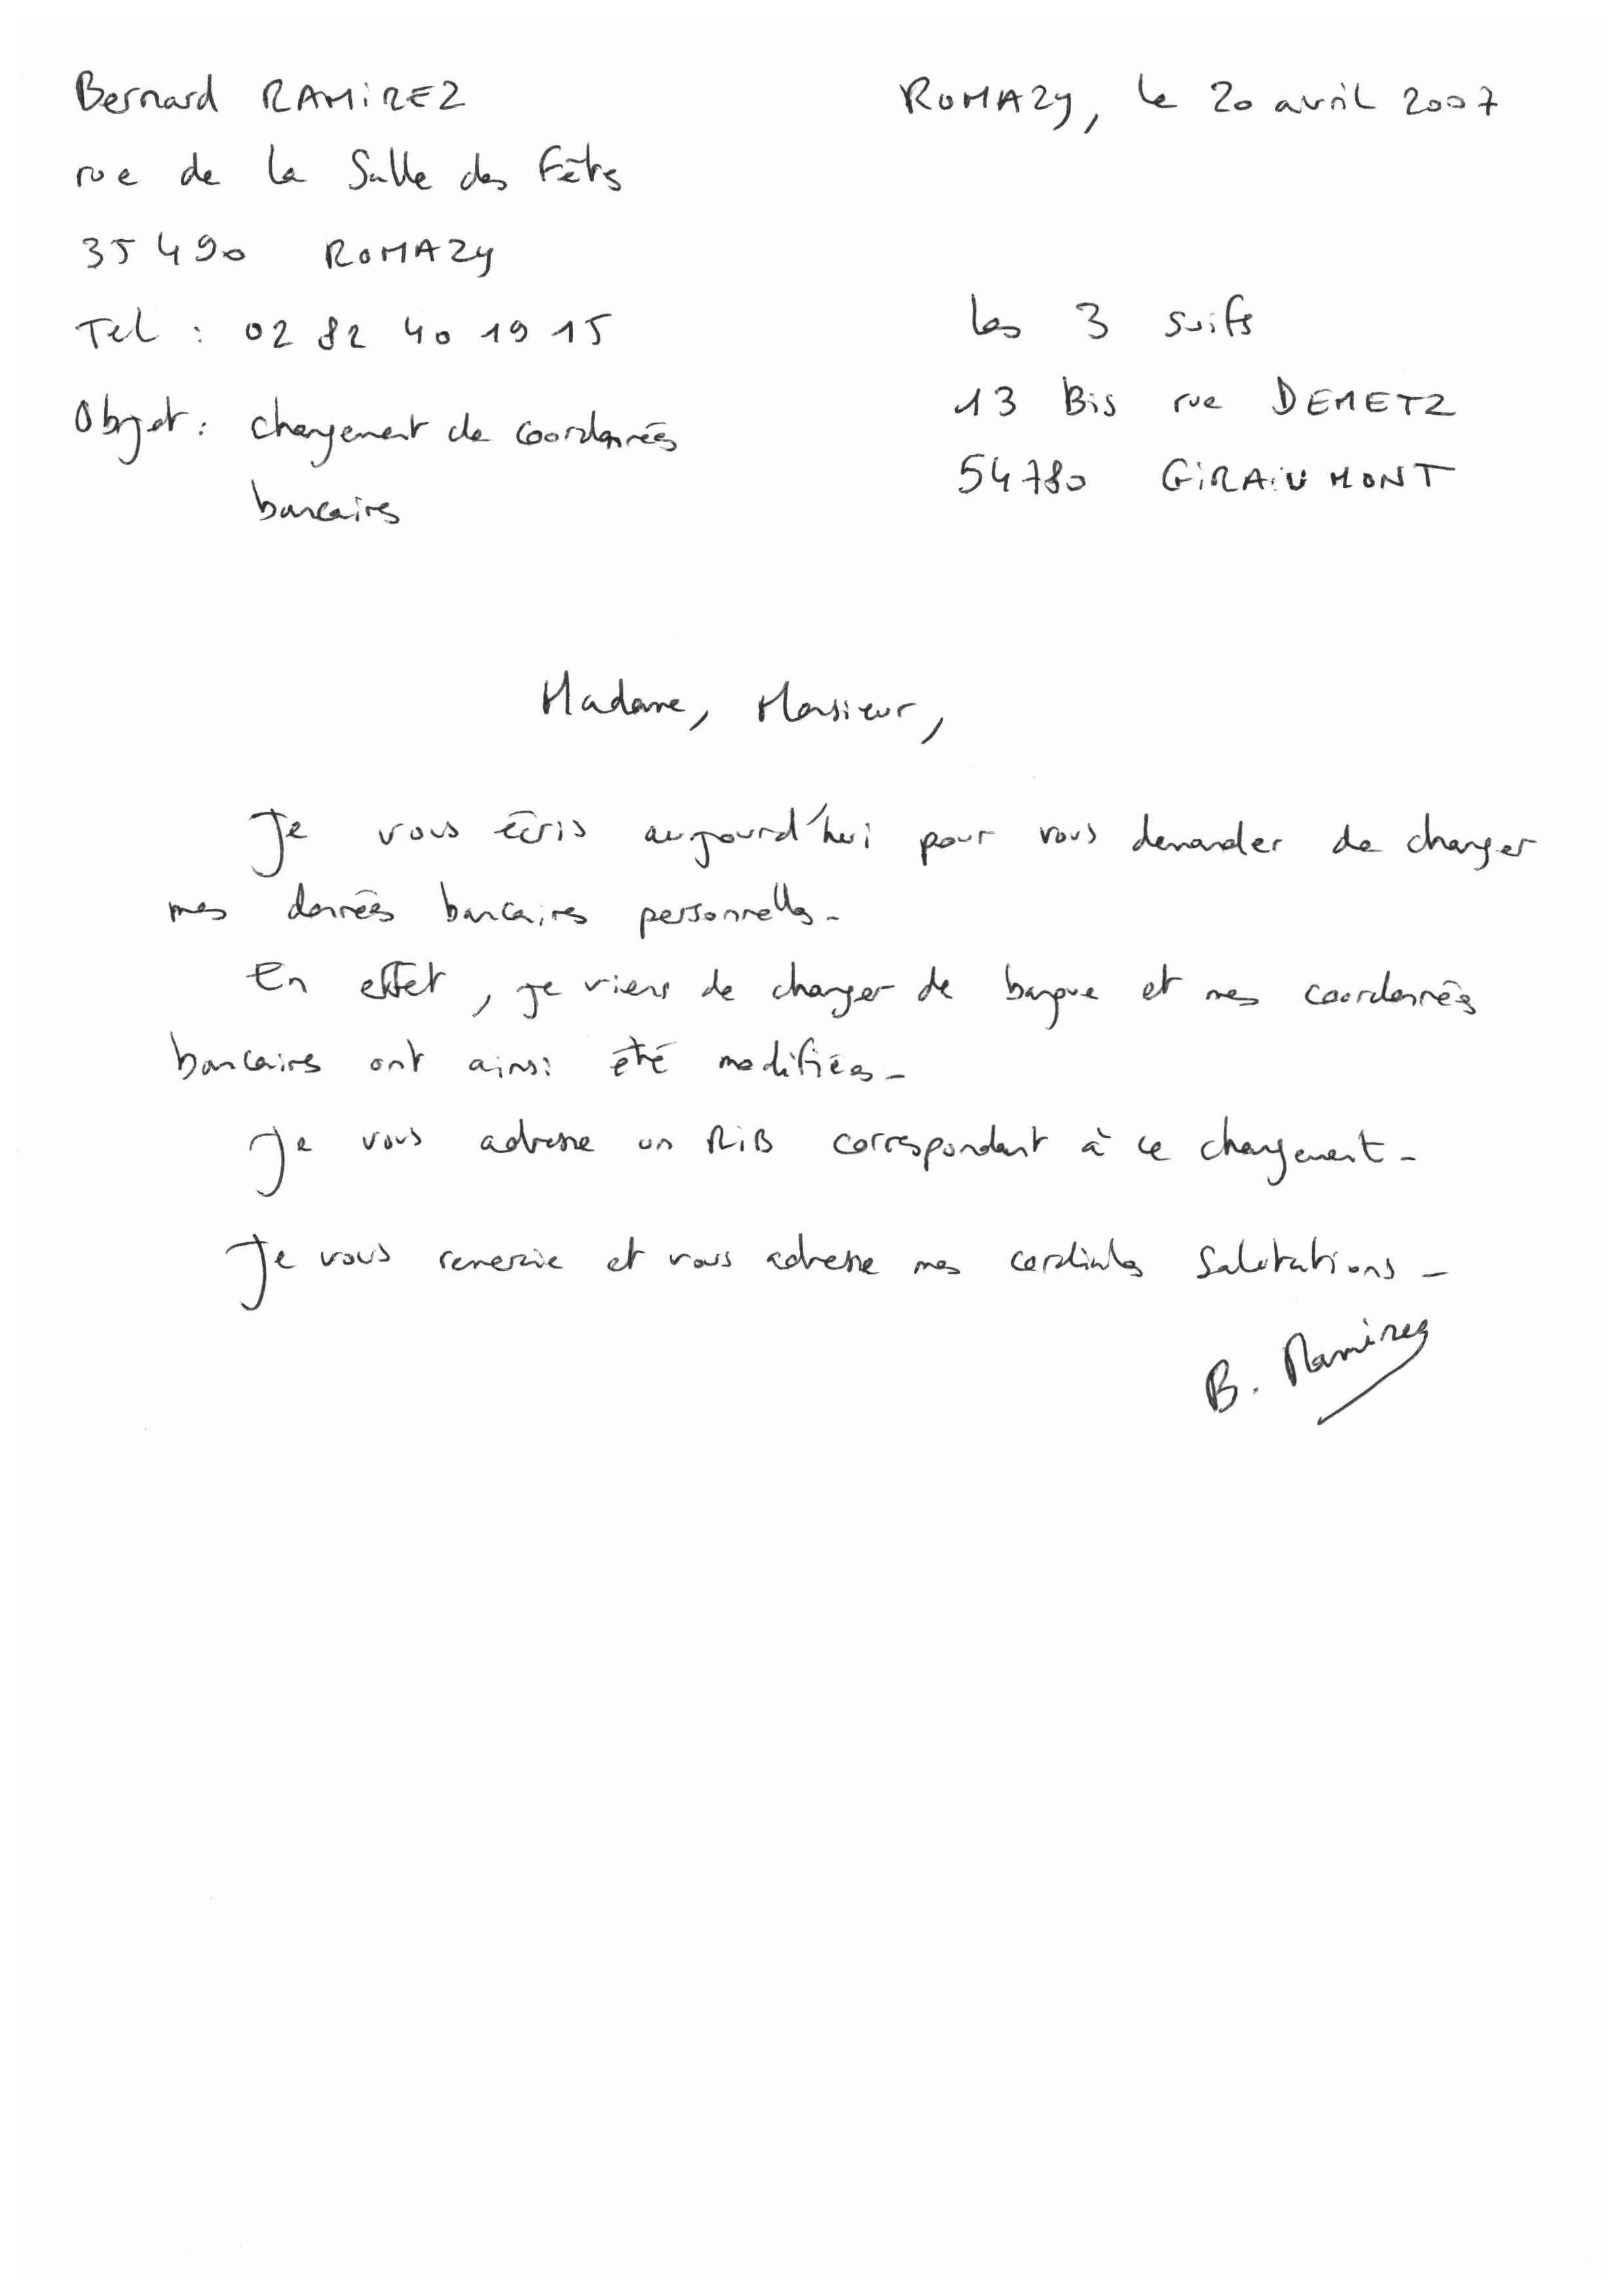 Bernard RAMIREZ
rue de la Salle des Fêtes
35490 ROMAZY
Tel : 02 82 40 19 15
Objet : changement de coordonnées
bancaires
ROMAZY, le 20 avril 2007
Les 3 suifs
13 Bis rue DEMETZ
54780 GIRAUMONT
Madame, Monsieur,
Je vous écris aujourd'hui pour vous demander de changer
mes données bancaires personnelles.
En effet, je viens de changer de banque et mes coordonnées
bancaires ont ainsi été modifiées.
Je vous adresse un RiB correspondant à ce changement.
Je vous remercie et vous adresse mes cordiales salutations.
B. Ramirez